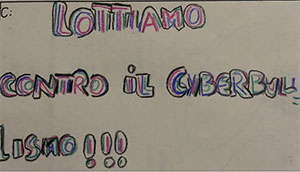 C:
LOTTIAMO
CONTRO iL CYBERBUL
LISMO!!!